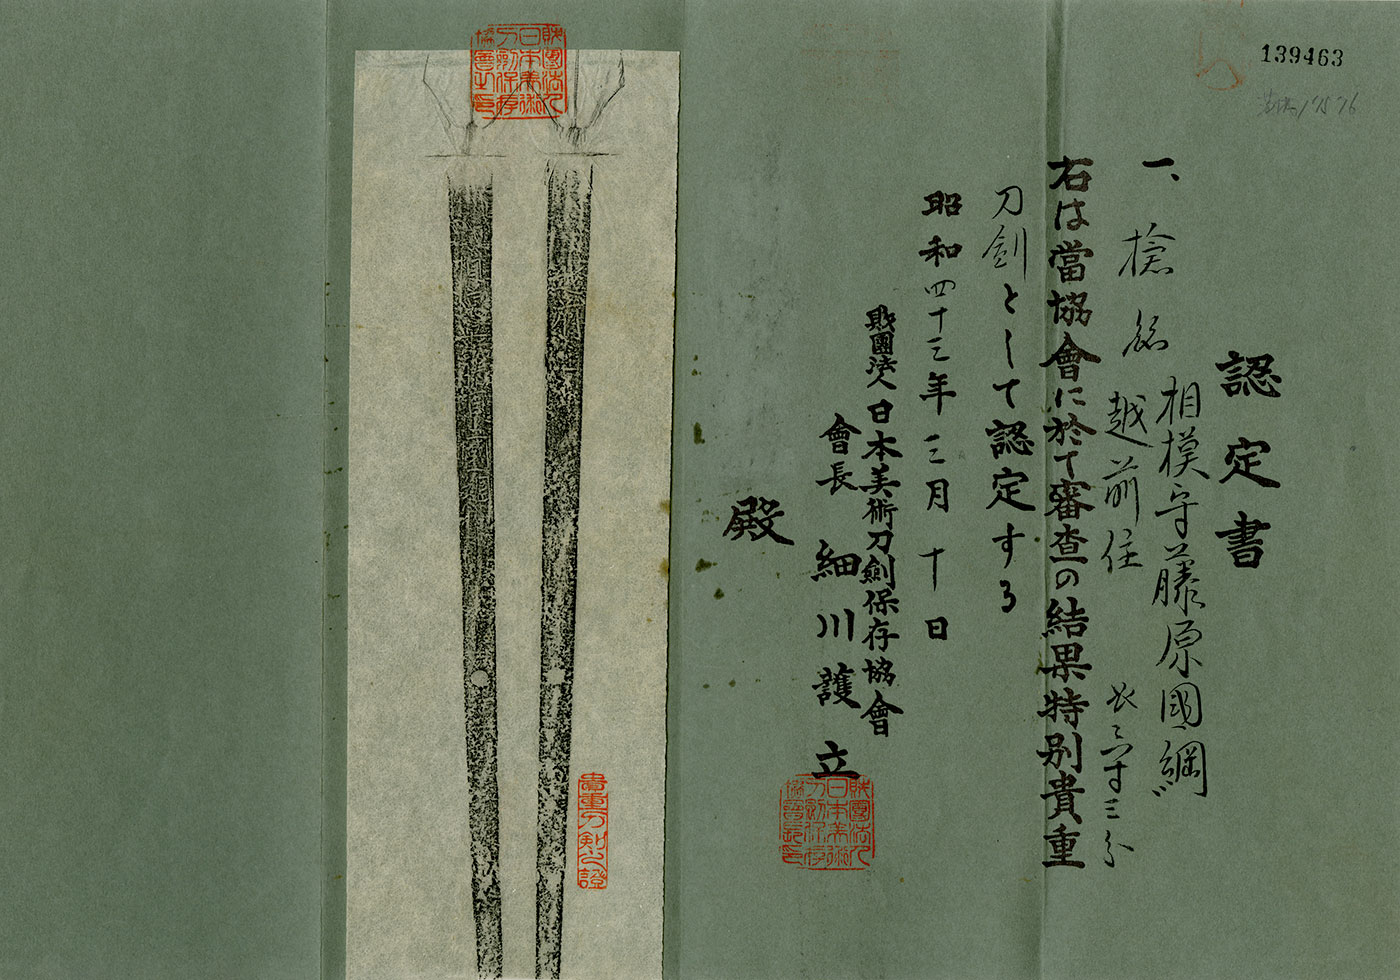 139463
認定書
一、槍 銘 相模守藤原國綱
越前住 長 六寸三分
右は當協會に於て審査の結果特別貴重
刀劍として認定する
昭和四十三年三月十日
財團法人日本美術刀劍保存協會
會長 細川護立
殿
財團法人日本美術刀劍保存協會之印
貴重刀剣之證
財團法人日本美術刀劍保存協會長印